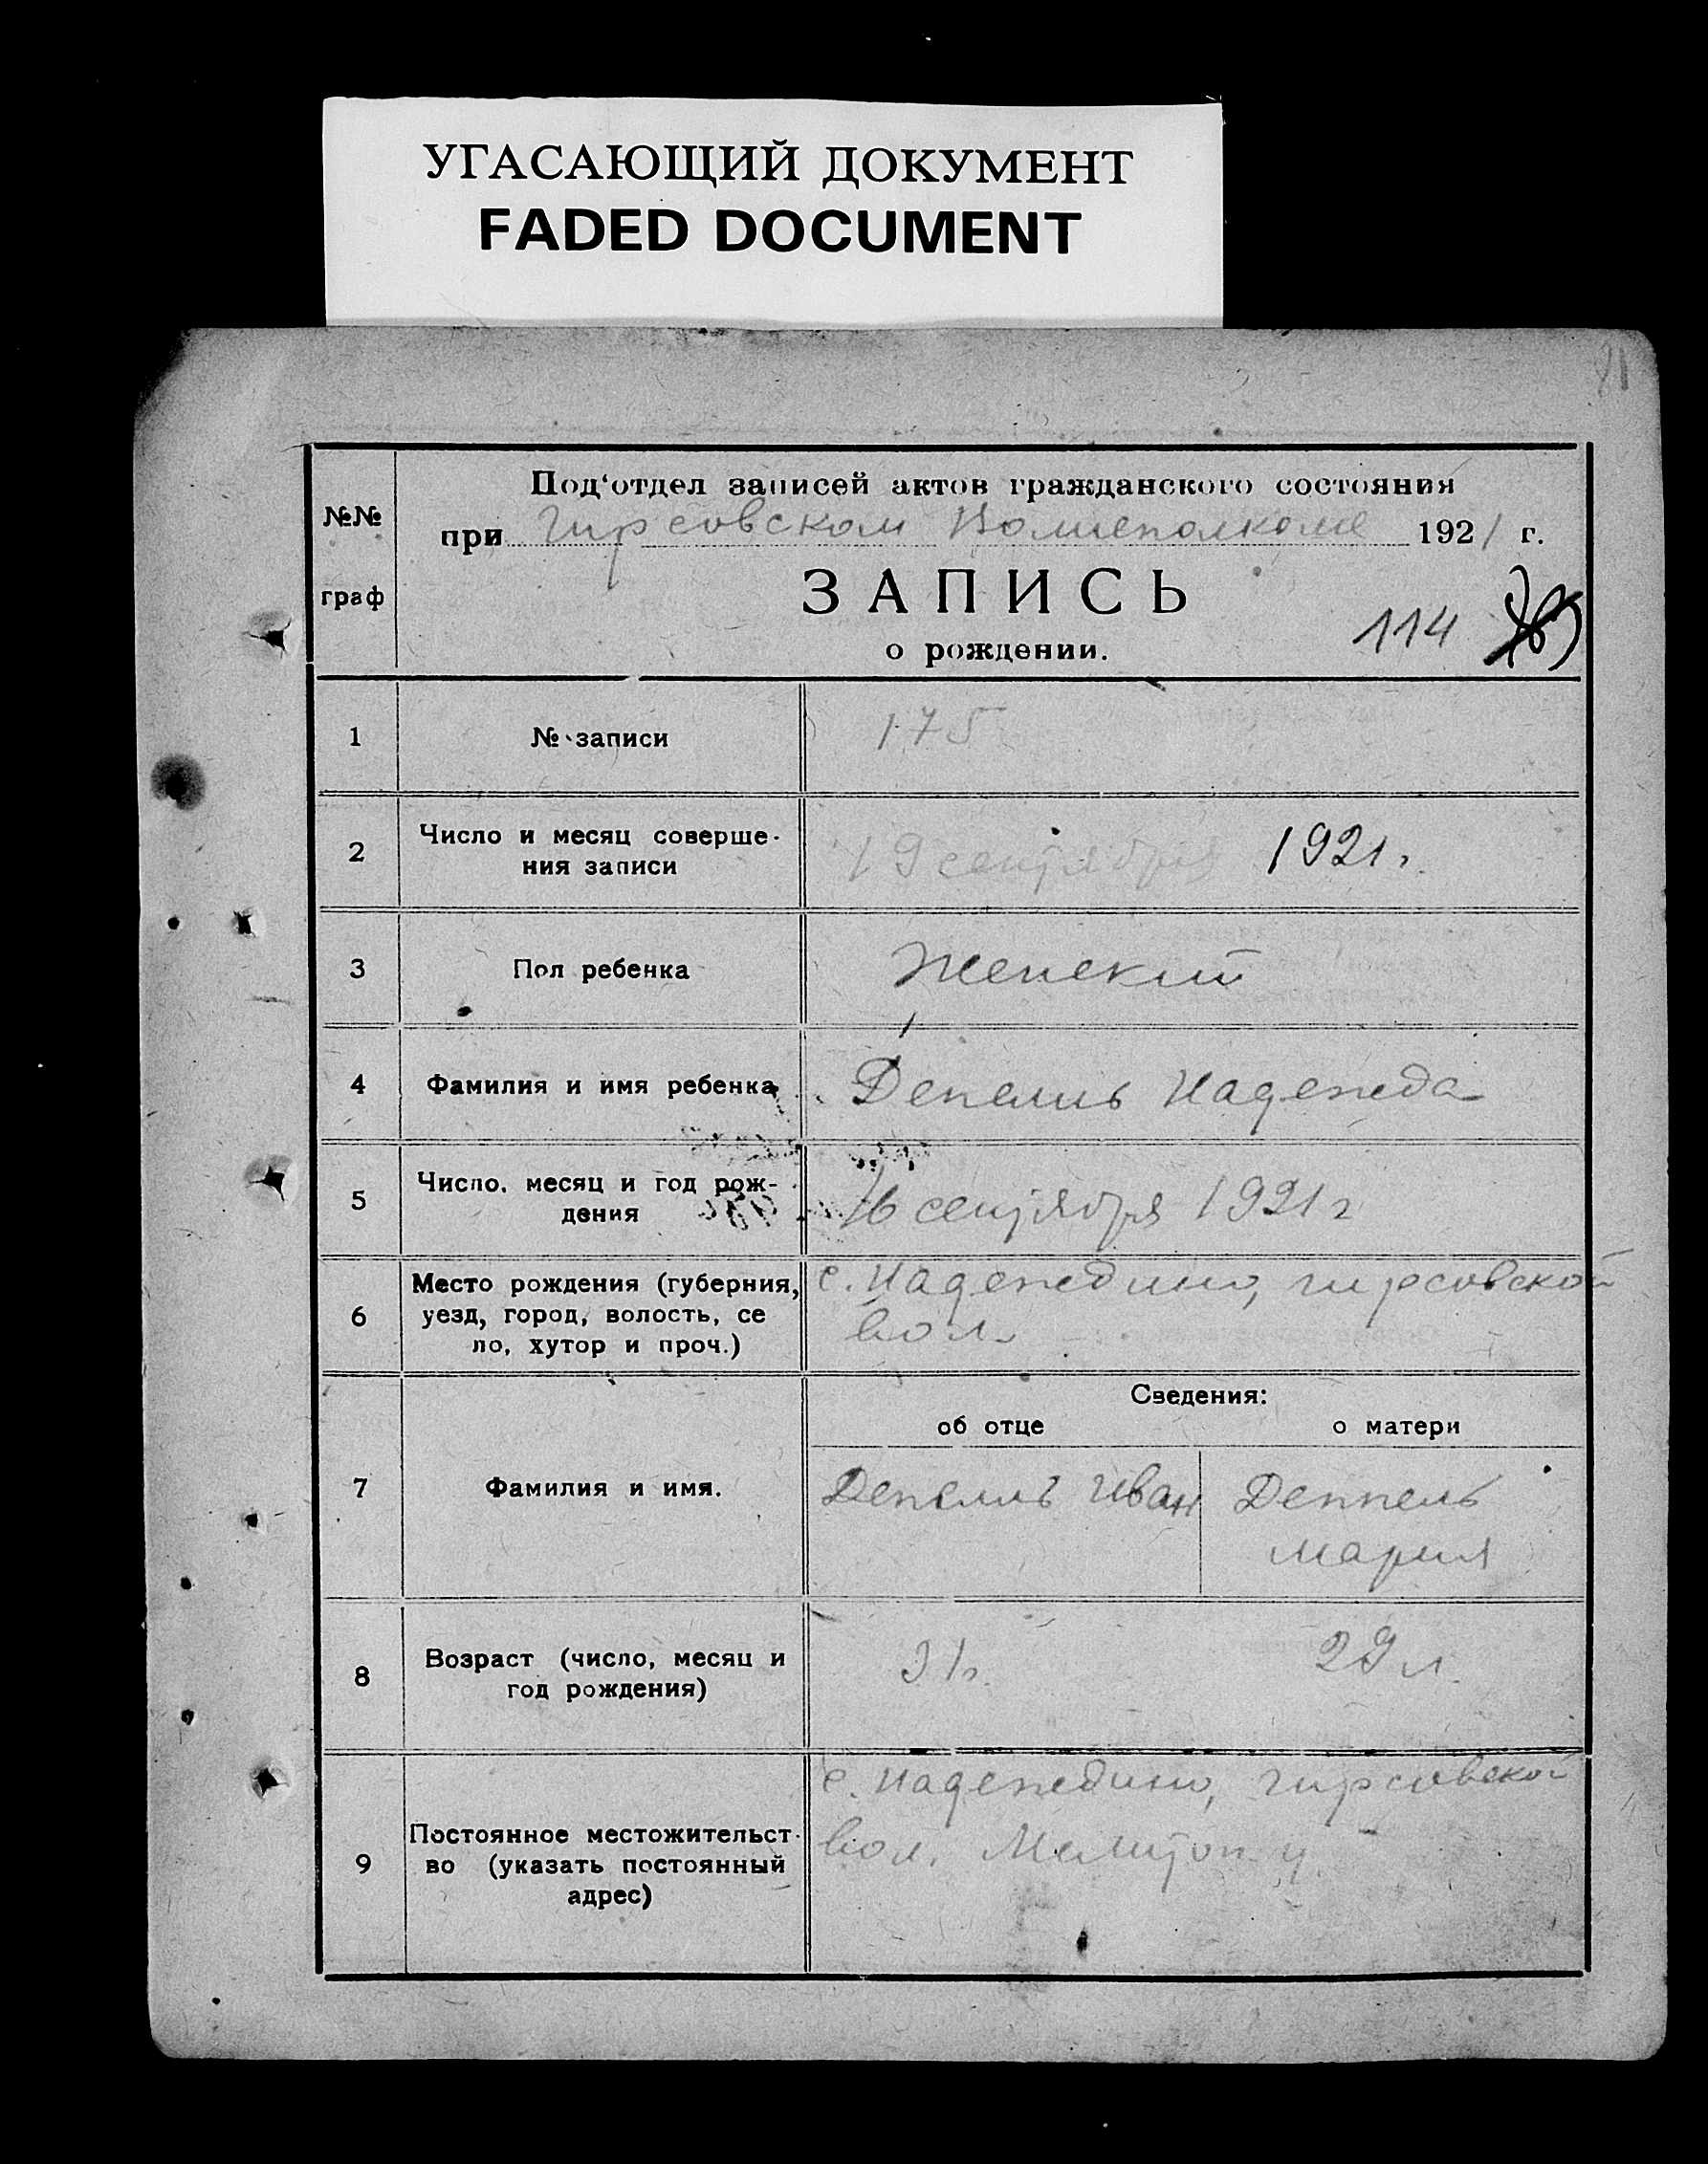 УГАСАЮЩИЙ ДОКУМЕНТ
FADED DOCUMENT
№№
граф
Под‘отдел записей актов гражданского состояния
при Гирсовском Волисполкоме 1921 г.
ЗАПИСЬ
о рождении.
114
1
№ записи
175
2
Число и месяц соверше-
ния записи
19 сентября 1921.
3
Пол ребенка
Женский
4
Фамилия и имя ребенка
Депель Надежда
5
Число, месяц и год рож-
дения
16 сентября 1921 г
6
Место рождения (губерния,
уезд, город, волость, се
ло, хутор и проч.)
с. Надеждино, гирсовской
вол.
Сведения:
об отце
о матери
7
Фамилия и имя.
Депель Иван
Деппель
Мария
8
Возраст (число, месяц и
год рождения)
31г.
29 л.
9
Постоянное местожительст-
во (указать постоянный
адрес)
с. Надеждино, гирсовской
вол. Мелитоп. у.